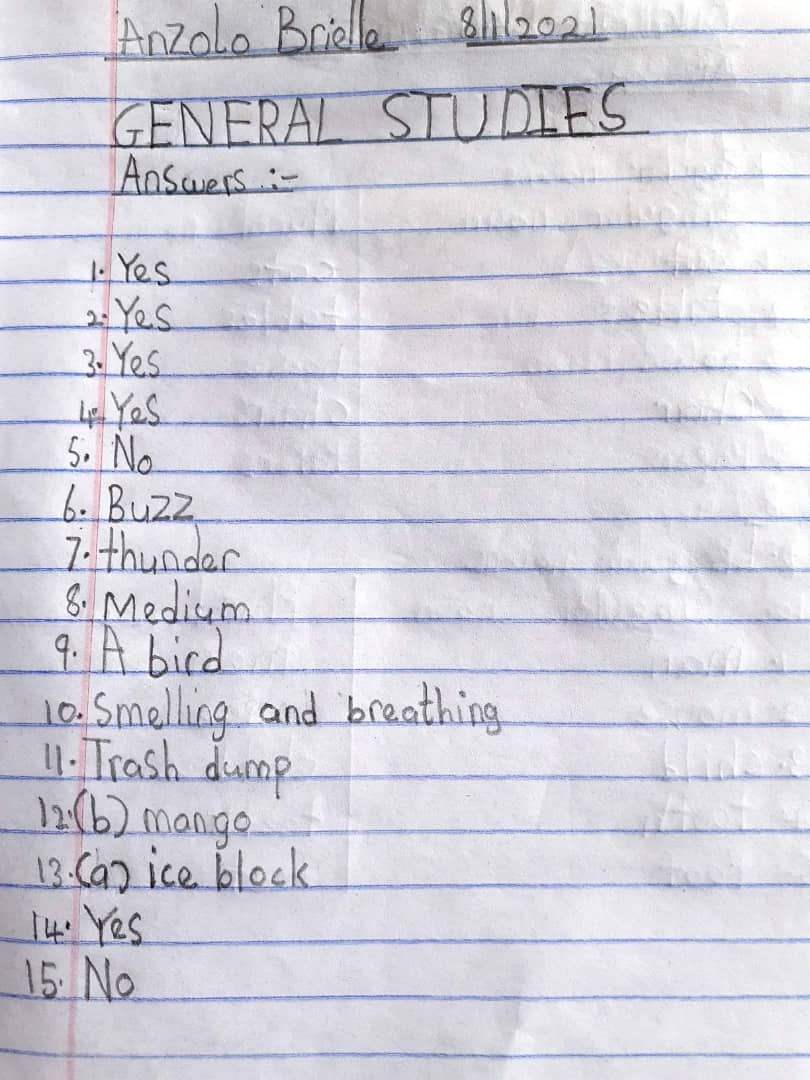 Anzolo Brielle 8/1/2021
GENERAL STUDIES
Answers :-
1. Yes
2. Yes
3. Yes
4. Yes
5. No
6. Buzz
7. thunder
8. Medium
9. A bird
10. Smelling and breathing
11. Trash dump
12. (b) mango
13. (a) ice block
14. Yes
15. No